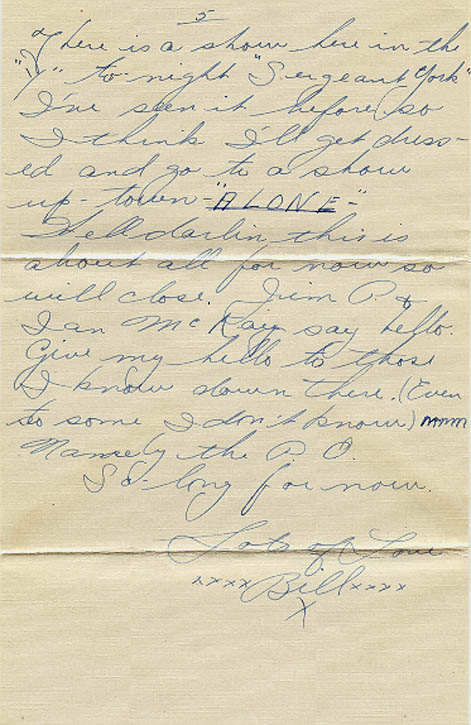 5
There is a show here in the
"Y" to-night "Sergeant York"
I've seen it before so
I think I'll get dress-
ed and go to a show
up-town-"ALONE"-
Well darlin, this is
about all for now so
will close. Jim P. &
Ian McKay say hello.
Give my hello to those
I know down there. (Even
to some I don't know) mmm
Namely the P. C.
So-long for now.
Lots of Love
xxxx Bill xxxx
X